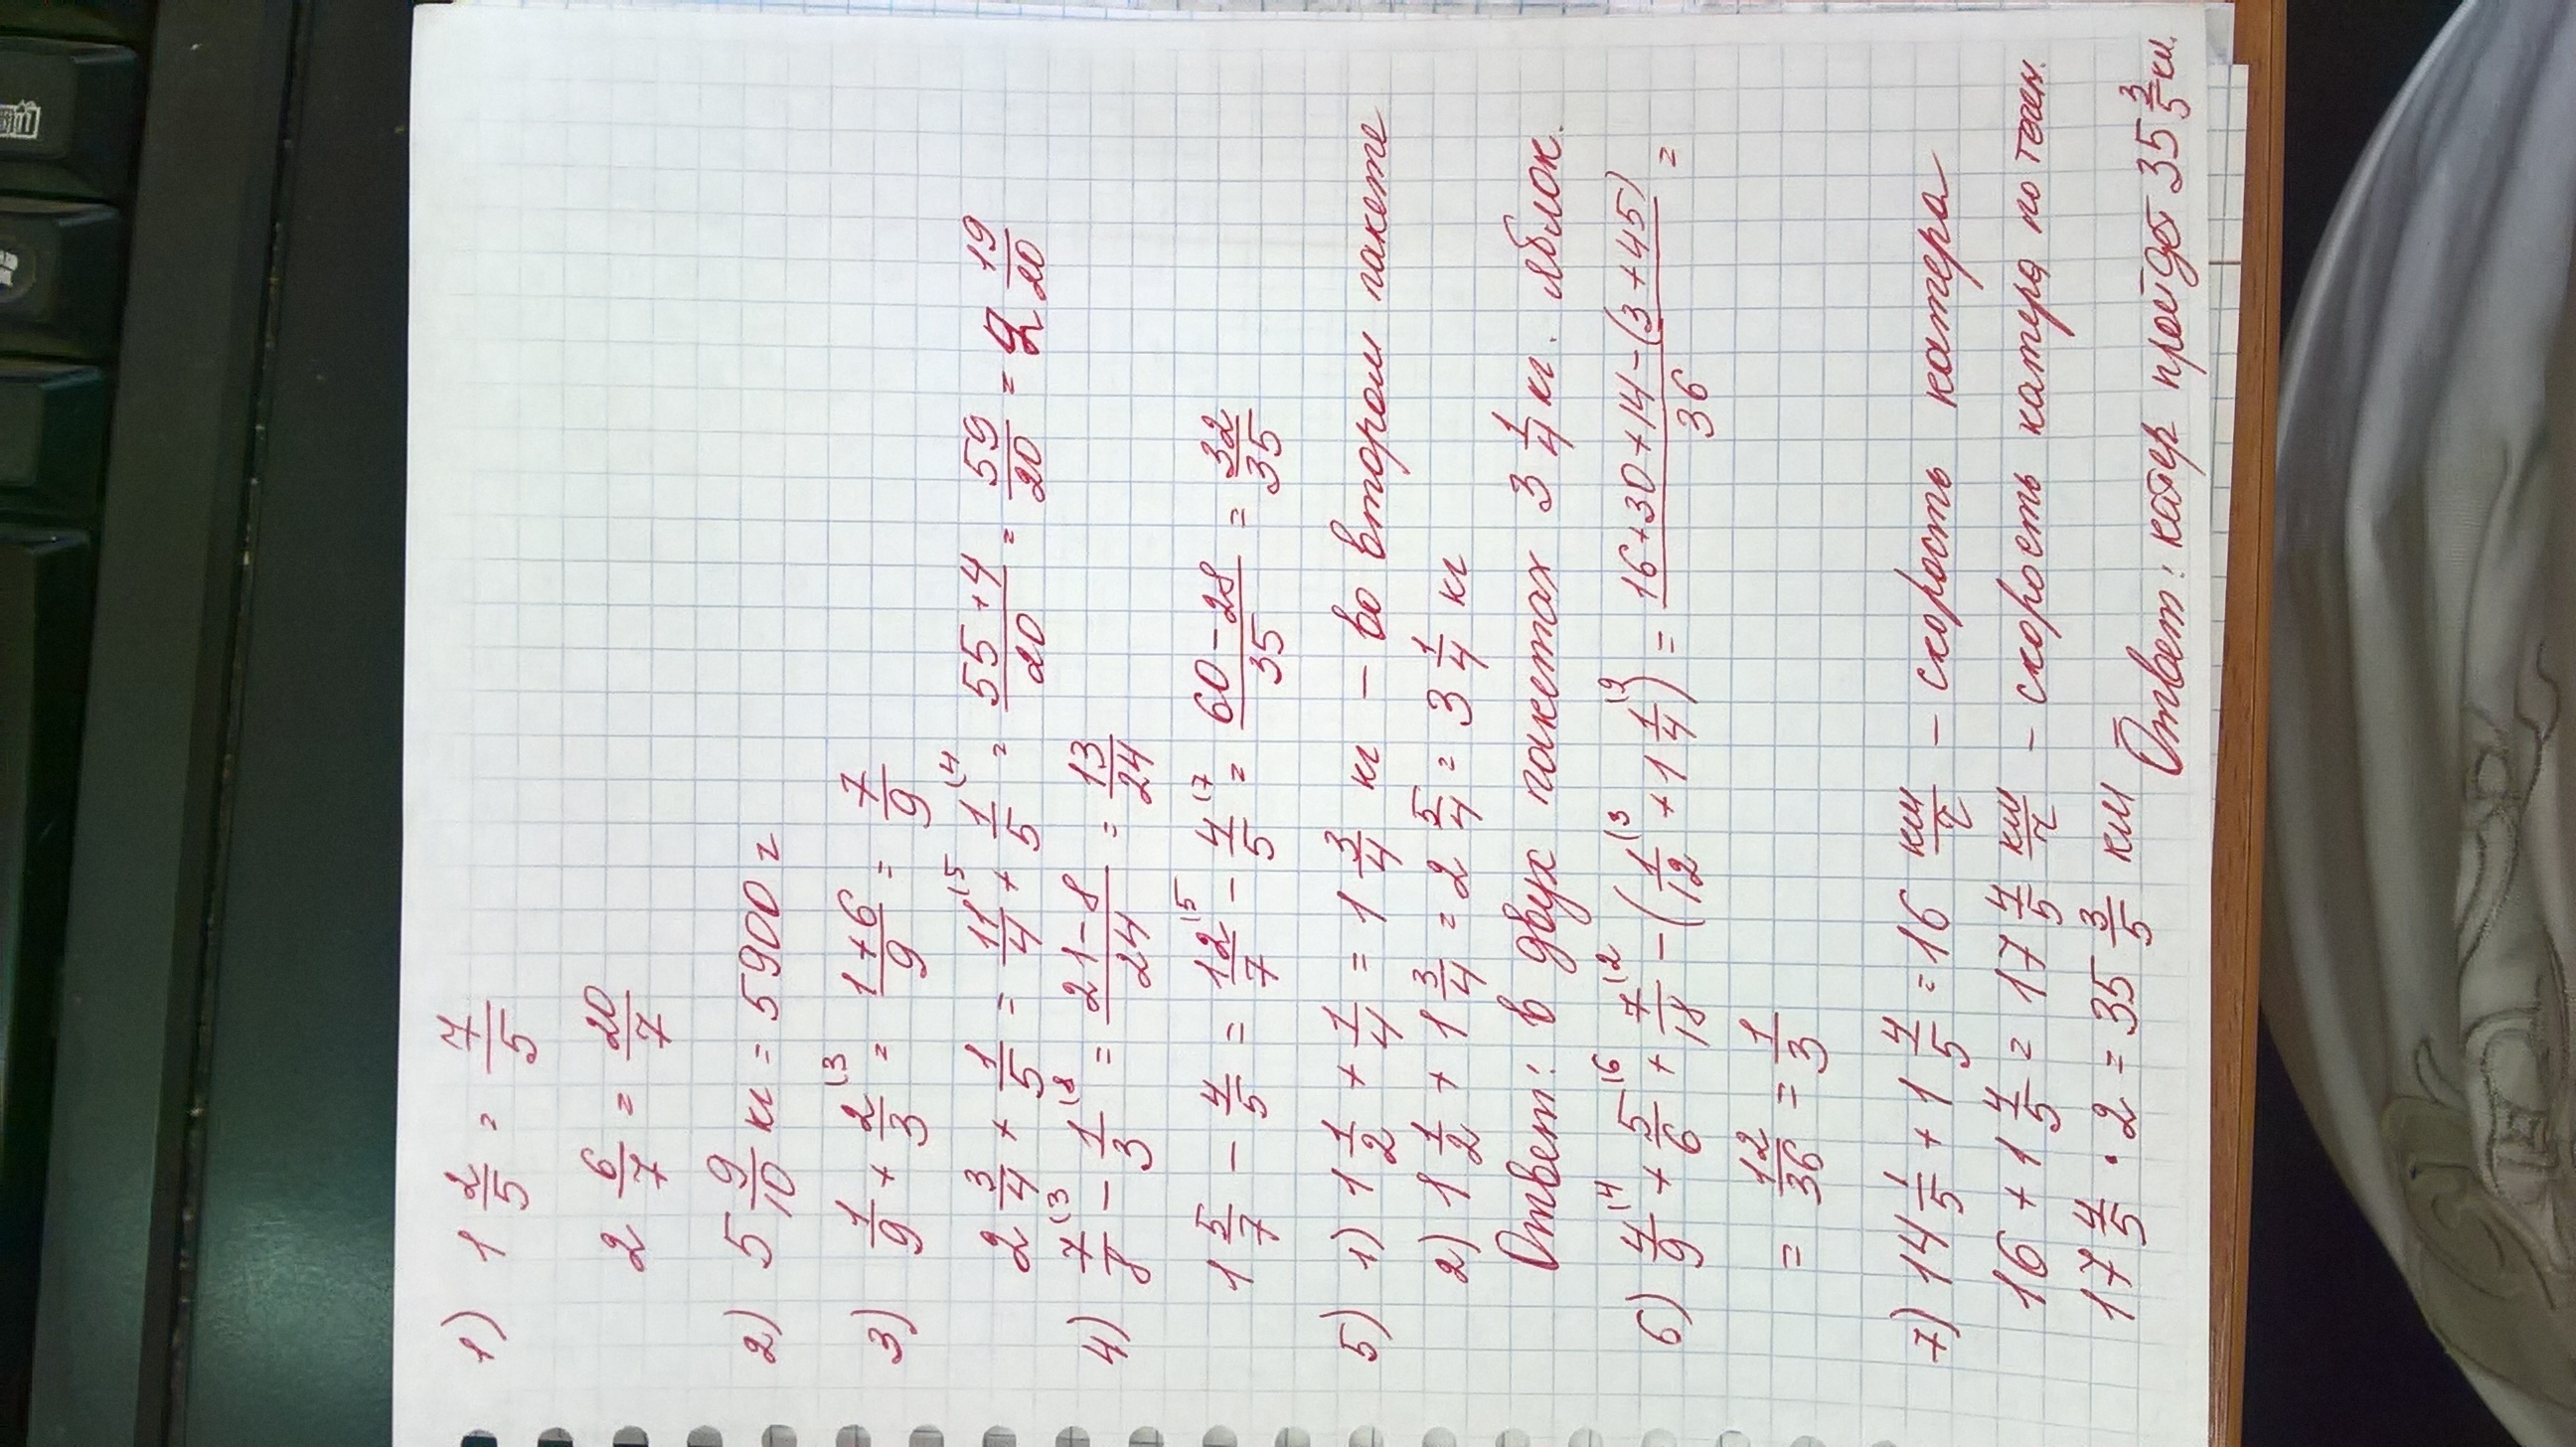 1) 1 2/5 = 7/5
2 6/7 = 20/7
2) 5 9/10 кг = 5900 г
3) 1/9 + 2/3 (3 = 1+6/9 = 7/9
2 3/4 + 1/5 = 11/4 (5 + 1/5 (4 = 55+4/20 = 59/20 = 2 19/20
4) 7/8 (3 - 1/3 (8 = 21-8/24 = 13/24
1 5/7 - 4/5 = 12/7 (5 - 4/5 (7 = 60-28/35 = 32/35
5) 1) 1 1/2 + 1/4 = 1 3/4 кг - во втором пакете
2) 1 1/2 + 1 3/4 = 2 5/4 = 3 1/4 кг
Ответ: в двух пакетах 3 1/4 кг. яблок.
6) 4/9 (4 + 5/6 (6 + 7/18 (2 - (1/12 (3 + 1 1/4 (9) = 16+30+14-(3+45)/36 =
= 12/36 = 1/3
7) 14 1/5 + 1 4/5 = 16 км/ч - скорость катера
16 + 1 4/5 = 17 4/5 км/ч - скорость катера по теч.
17 4/5 · 2 = 35 3/5 км
Ответ: катер пройдет 35 3/5 км.